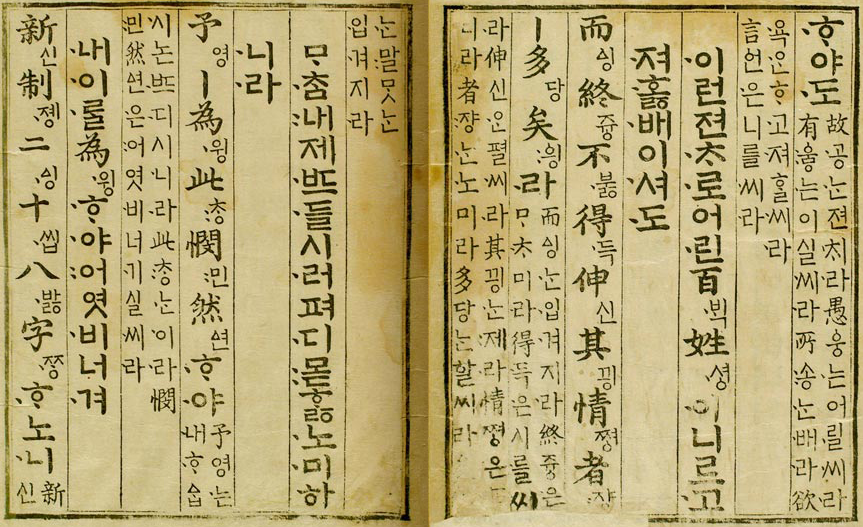 ᄒᆞ야도 故공ᄂᆞᆫ젼ᄎᆡ라愚ᅌᅮᆼ는어릴씨라
有ᅌᅮᇢ는이실씨라所송ᄂᆞᆫ배라欲
욕ᄋᆞᆫᄒᆞ고져ᄒᆞᆯ씨라
言언은니를씨라
이런젼ᄎᆞ로어린百ᄇᆡᆨ姓셔ᇰ이니르고
져호ᇙ배이셔도
而ᅀᅵᆼ終쥬ᇰ不부ᇙ得득伸신其끵情쪄ᇰ者쟝
ㅣ多당矣ᅌᅴᆼ라 而ᅀᅵᆼᄂᆞᆫ입겨지라終쥬ᇰ은
ᄆᆞᄎᆞ미라得득은시를씨
라伸신ᄋᆞᆫ펼씨라其끵ᄂᆞᆫ제라情쪄ᇰ은
디라者쟝ᄂᆞᆫ노미라多당ᄂᆞᆫ할씨라
ᄂᆞᆫ말ᄆᆞᆺᄂᆞᆫ
입겨지라
ᄆᆞᄎᆞᆷ내제ᄠᅳ들시러펴디몯ᄒᆞᇙ노미하
니라
予영ㅣ為윙此ᄎᆞᆼ憫민然ᅀᅧᆫᄒᆞ야 予영는
내ᄒᆞᅀᆞᆸ
시논ᄠᅳ디시니라此ᄎᆞᆼᄂᆞᆫ이라憫
민然ᅀᅧᆫ은어엿비너기실씨라
내이ᄅᆞᆯ為윙ᄒᆞ야어엿비너겨
新신制졩二ᅀᅵᆼ十씹八바ᇙ字ᄍᆞᆼᄒᆞ노니 新
신